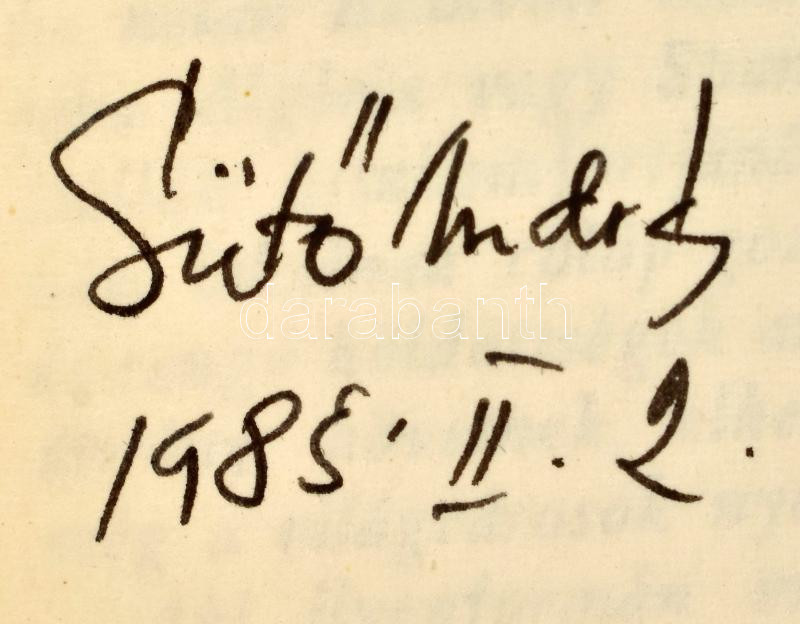 Sütő András
darabanth
1985. II. 2.